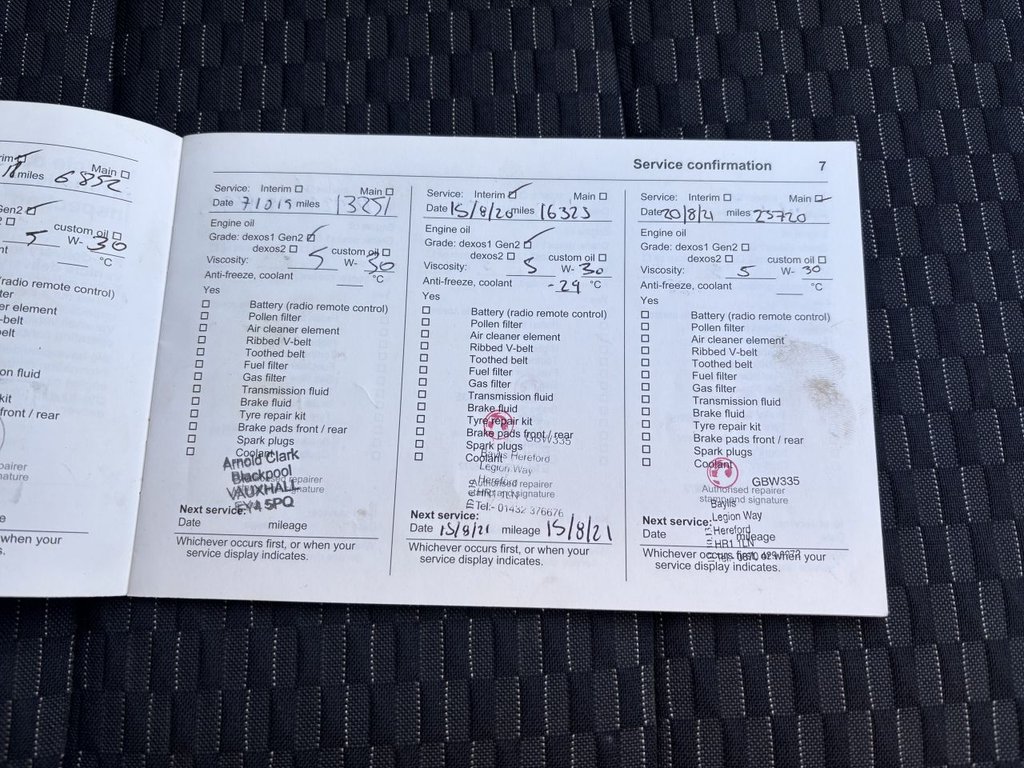 rim
Main
miles 6852
Gen2
custom oil
5 W- 30
°C
radio remote control)
ter
er element
-belt
elt
on fluid
kit
front / rear
pairer
nature
e
when your
s.
Service confirmation 7
Service: Interim Main
Date 71019 miles 13251
Engine oil
Grade: dexos1 Gen2
dexos2 custom oil
Viscosity: 5 W- 30
Anti-freeze, coolant °C
Yes
Battery (radio remote control)
Pollen filter
Air cleaner element
Ribbed V-belt
Toothed belt
Fuel filter
Gas filter
Transmission fluid
Brake fluid
Tyre repair kit
Brake pads front / rear
Spark plugs
Coolant
Arnold Clark
Blackpool
VAUXHALL
FY4 5PQ
Next service:
Date mileage
Whichever occurs first, or when your
service display indicates.
Service: Interim Main
Date 15/8/20 miles 16323
Engine oil
Grade: dexos1 Gen2
dexos2 custom oil
Viscosity: 5 W- 30
Anti-freeze, coolant -29 °C
Yes
Battery (radio remote control)
Pollen filter
Air cleaner element
Ribbed V-belt
Toothed belt
Fuel filter
Gas filter
Transmission fluid
Brake fluid
Tyre repair kit
Brake pads front / rear
Spark plugs
Coolant
GBW335
Baylis Hereford
Legion Way
Hereford
HR1 1LN
Tel:- 01432 376676
Authorised repairer
stamp and signature
Next service:
Date 15/8/21 mileage 15/8/21
Whichever occurs first, or when your
service display indicates.
Service: Interim Main
Date 20/8/21 miles 23720
Engine oil
Grade: dexos1 Gen2
dexos2 custom oil
Viscosity: 5 W- 30
Anti-freeze, coolant °C
Yes
Battery (radio remote control)
Pollen filter
Air cleaner element
Ribbed V-belt
Toothed belt
Fuel filter
Gas filter
Transmission fluid
Brake fluid
Tyre repair kit
Brake pads front / rear
Spark plugs
Coolant
GBW335
Authorised repairer
stamp and signature
Baylis
Legion Way
Hereford
HR1 1LN
Next service:
Date mileage
Whichever occurs first, or when your
service display indicates.